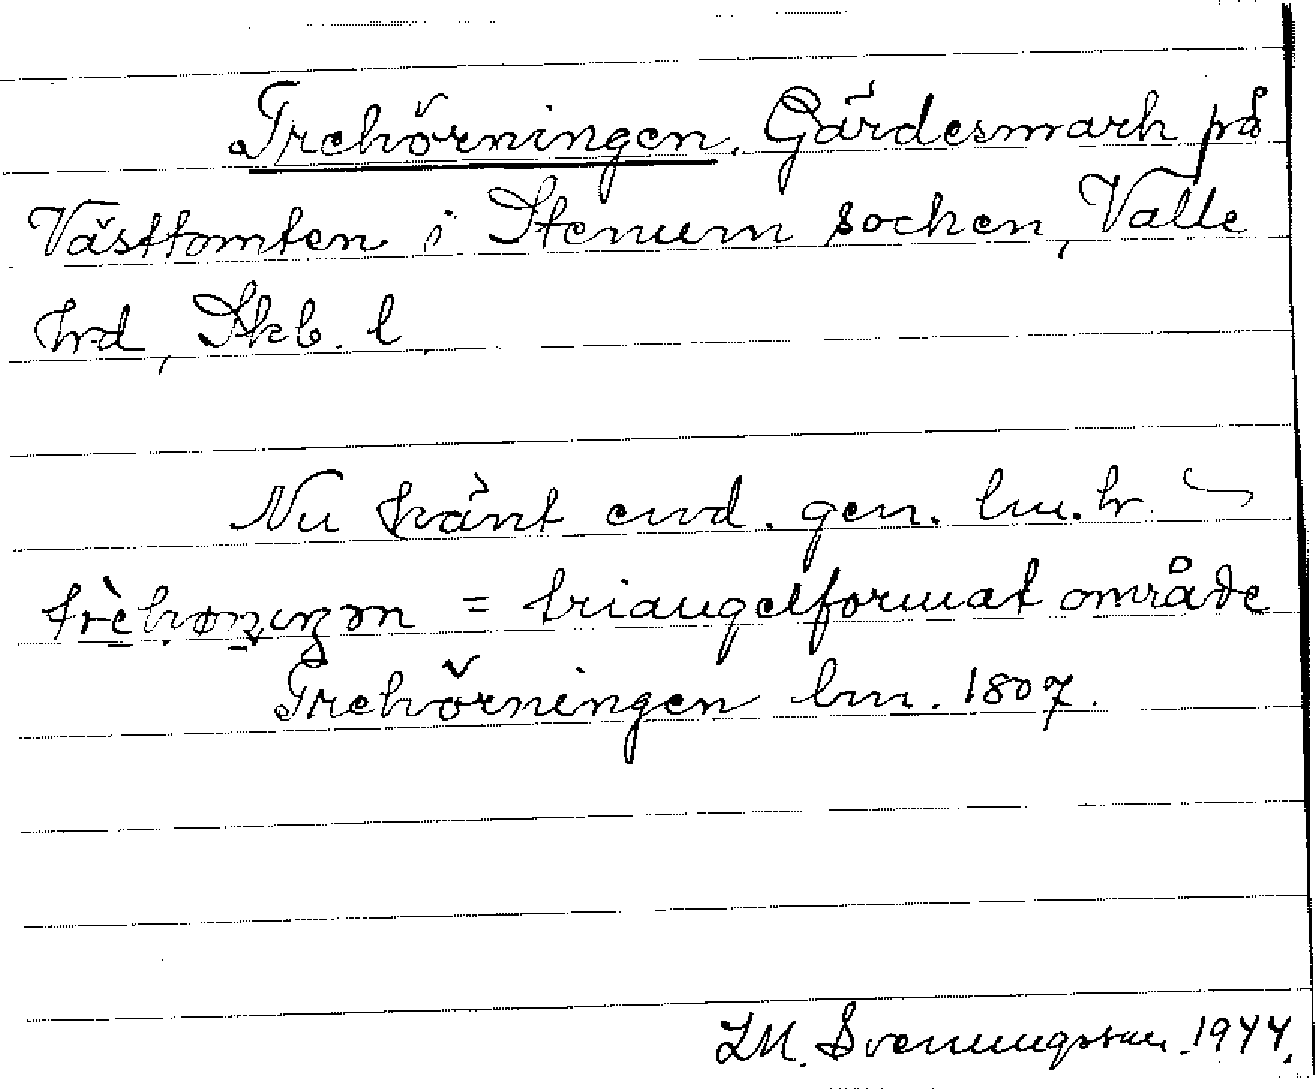 Trehörningen. Gärdesmark på
Västtomten i Stenum socken, Valle
hrd, Skb. l.
Nu känt end. gen. lm. h.
= triangelformat område
Trehörningen lm. 1807.
I.M. Svenungsson 1944.